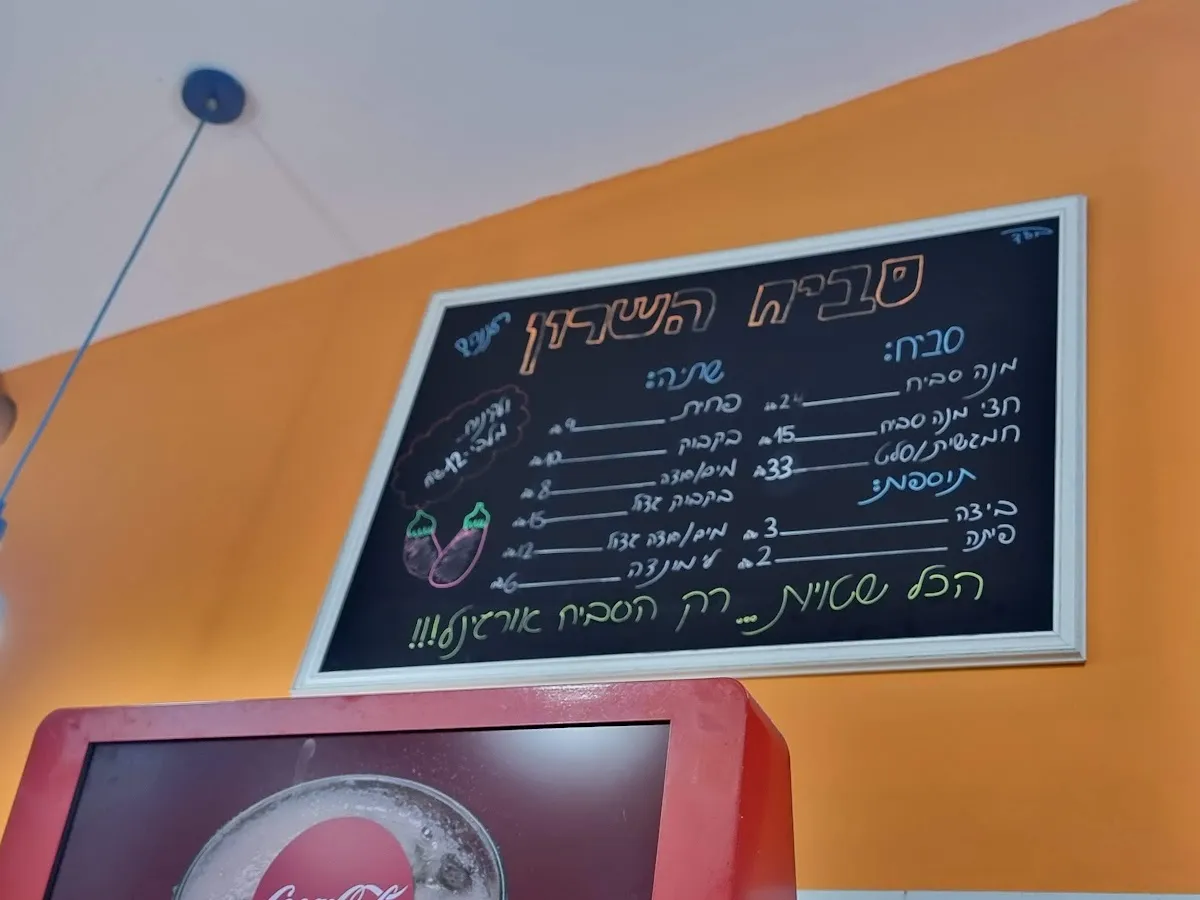 בס"ד
סביח השרון
סביח:
מנה סביח 24 ₪
חצי מנה סביח 15 ₪
חמגשית/סלט 33 ₪
תוספת:
ביצה 3 ₪
פיתה 2 ₪
שתיה:
פחית 9 ₪
בקבוק 10 ₪
מים/סודה 8 ₪
בקבוק גדול 15 ₪
מים/סודה גדול 12 ₪
לימונדה 6 ₪
ולקינוח..
מלבי - 12 ₪
הכל שטויות... רק הסביח אורגינל!!!
Coca-Cola